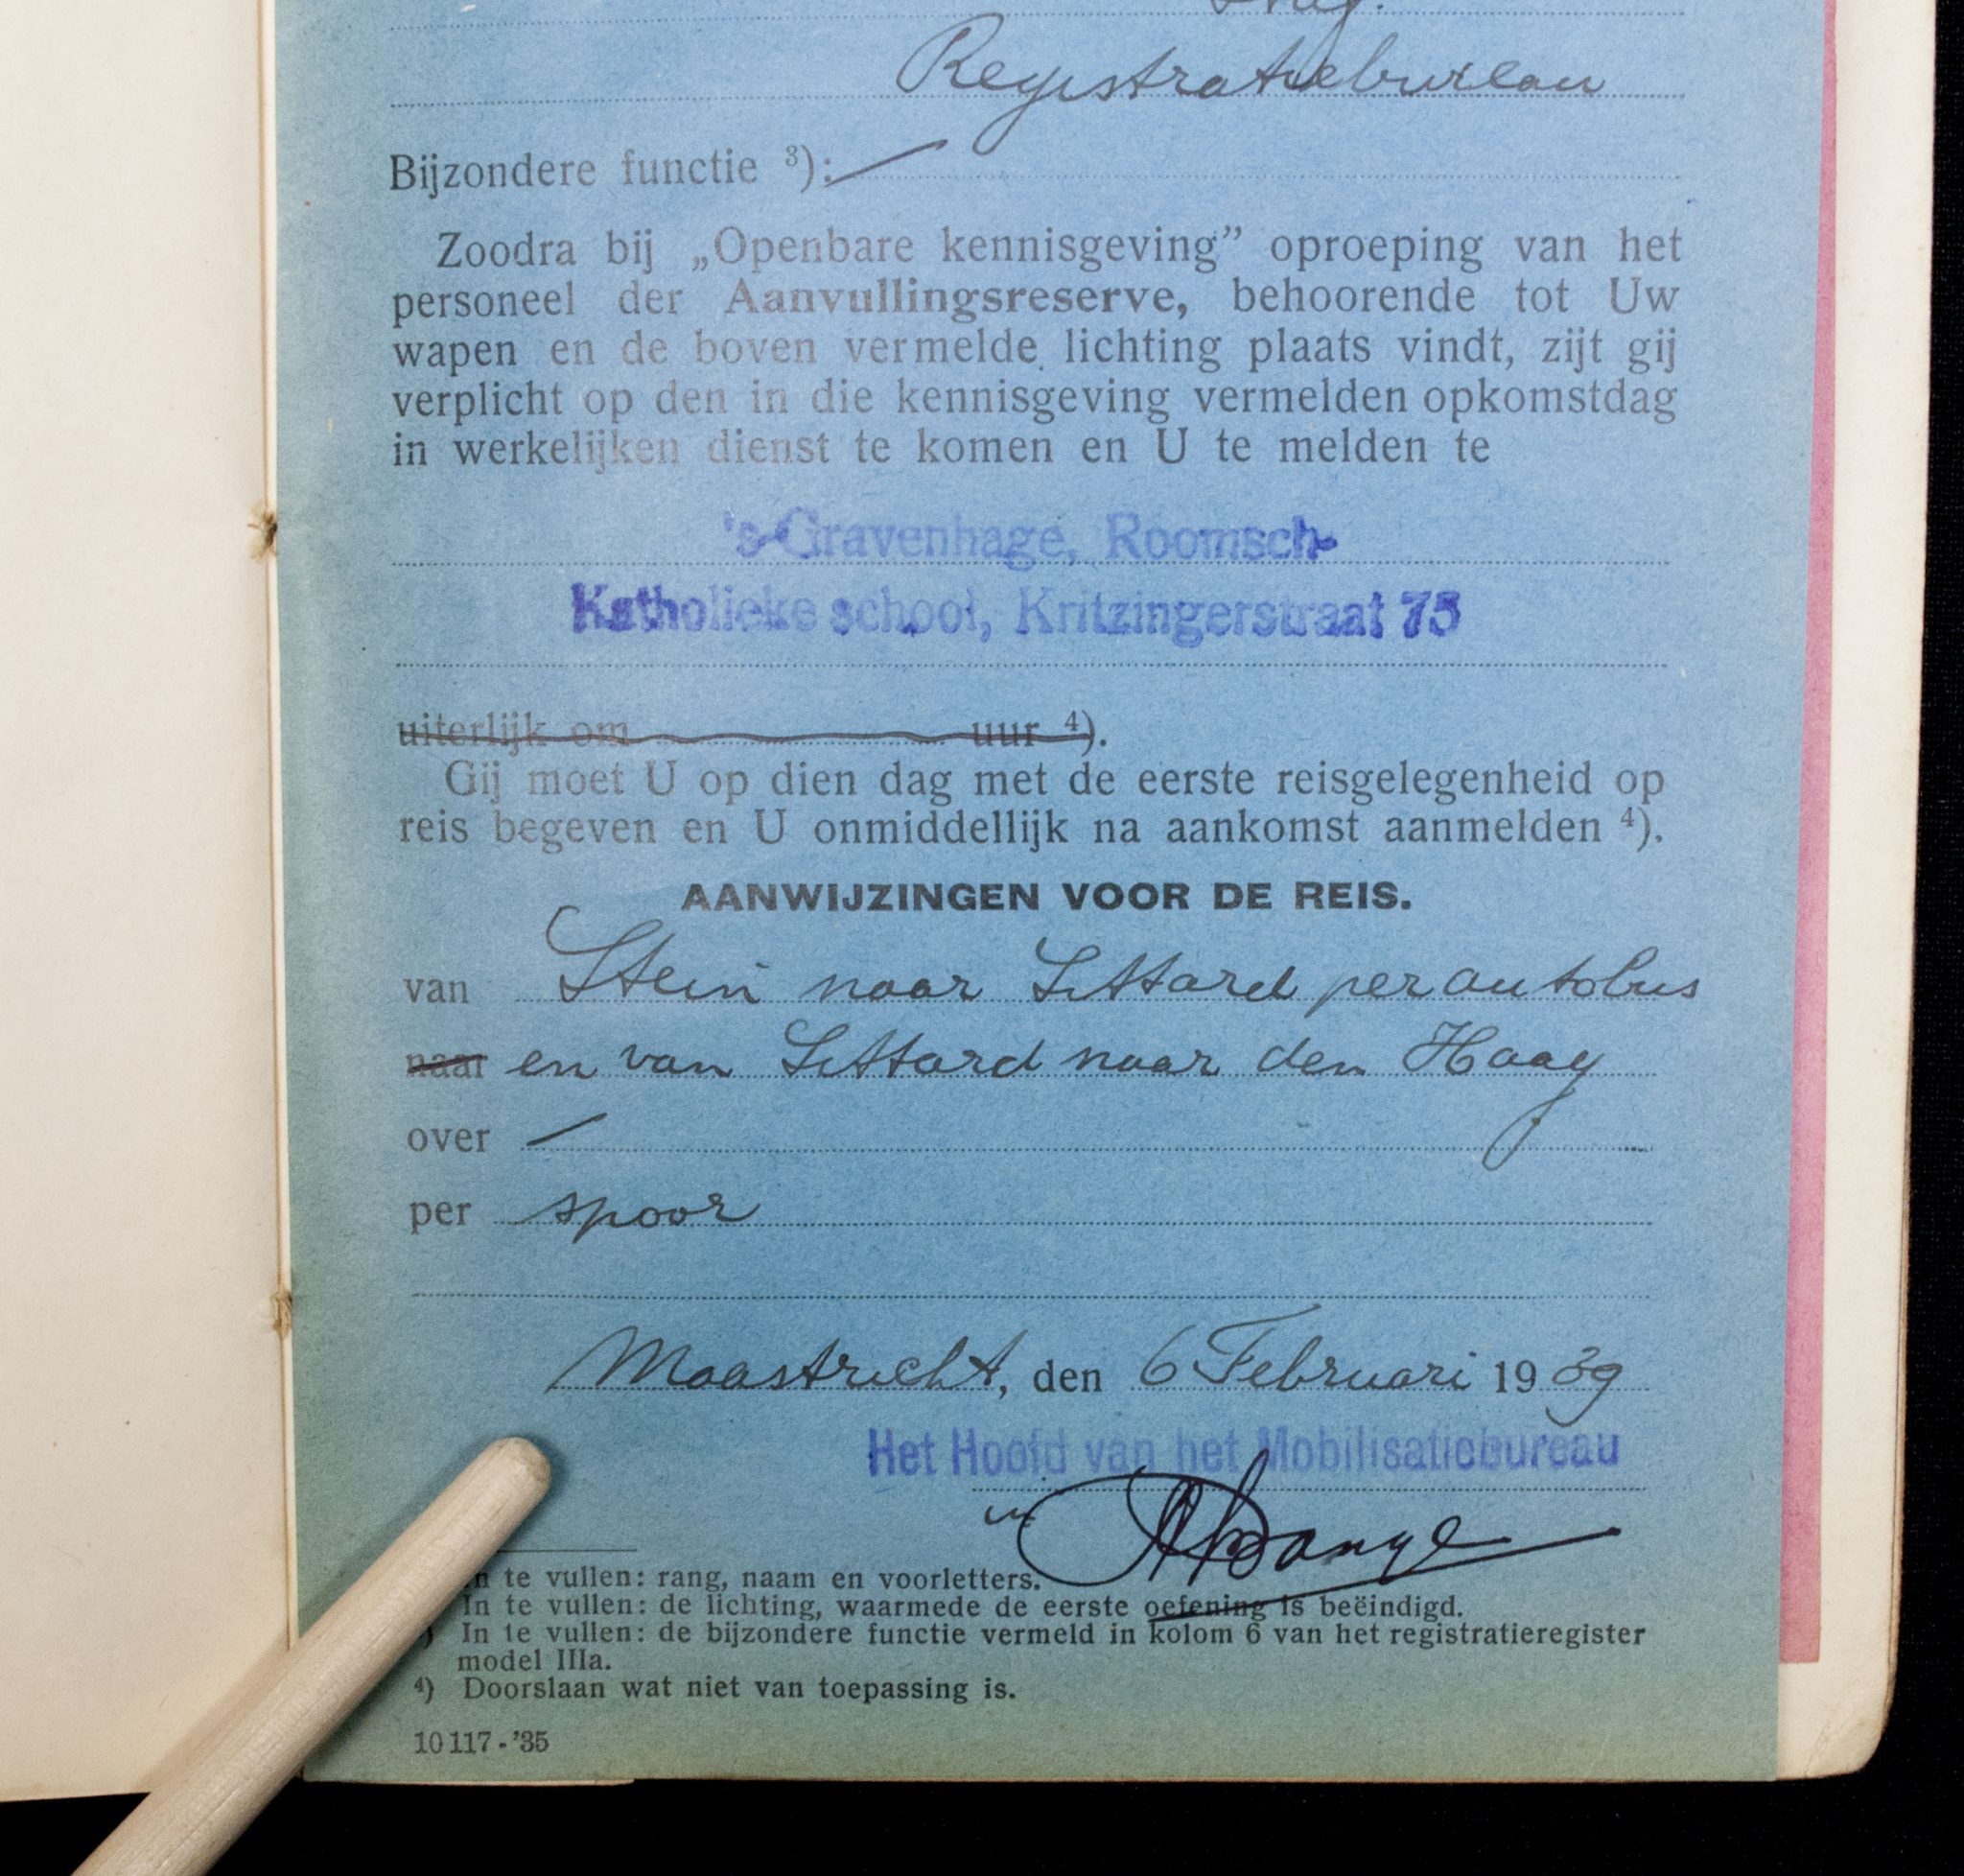 Registratiebureau
Bijzondere functie ³):
Zoodra bij „Openbare kennisgeving” oproeping van het
personeel der Aanvullingsreserve, behoorende tot Uw
wapen en de boven vermelde lichting plaats vindt, zijt gij
verplicht op den in die kennisgeving vermelden opkomstdag
in werkelijken dienst te komen en U te melden te
's-Gravenhage, Roomsch-
Katholieke school, Kritzingerstraat 75
uiterlijk om uur ⁴).
Gij moet U op dien dag met de eerste reisgelegenheid op
reis begeven en U onmiddellijk na aankomst aanmelden ⁴).
AANWIJZINGEN VOOR DE REIS.
van Stein naar Sittard per autobus
naar en van Sittard naar den Haag
over
per spoor
Maastricht, den 6 Februari 1939
Het Hoofd van het Mobilisatiebureau
In te vullen: rang, naam en voorletters.
In te vullen: de lichting, waarmede de eerste oefening is beëindigd.
) In te vullen: de bijzondere functie vermeld in kolom 6 van het registratieregister
model IIIa.
⁴) Doorslaan wat niet van toepassing is.
10117-'35